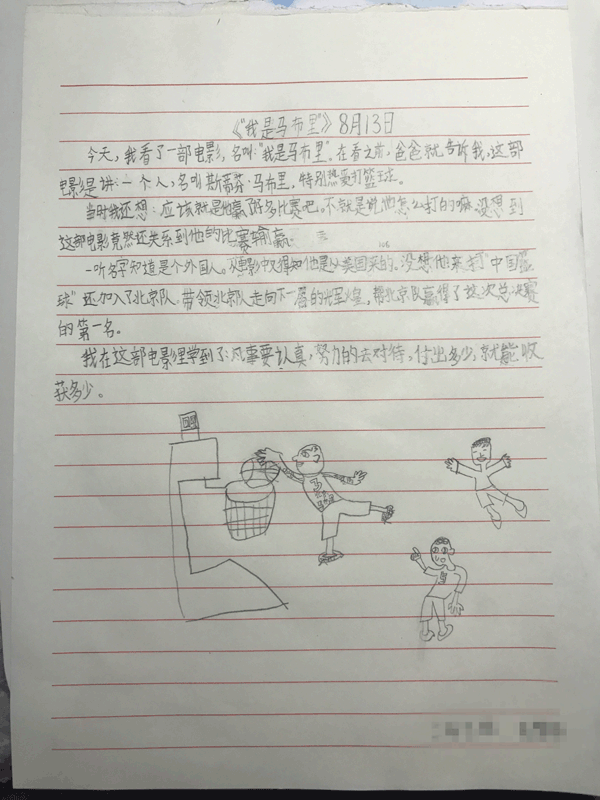 《“我是马布里”》8月13日
今天，我看了一部电影，名叫：“我是马布里”。在看之前，爸爸就告诉我，这部
电影是讲：一个人，名叫斯蒂芬·马布里，特别热爱打篮球。
当时我还想：应该就是他赢了好多比赛吧。不就是说他怎么打的嘛，没想到
这部电影竟然还关系到他的比赛输赢。
一听名字知道是个外国人。从电影中又得知他是从美国来的，没想他来打“中国篮
球”还加入了北京队。带领北京队走向下一层的辉煌，帮北京队赢得了这次总决赛
的第一名。
我在这部电影里学到了：凡事要认真，努力的去对待，付出多少，就能收
获多少。